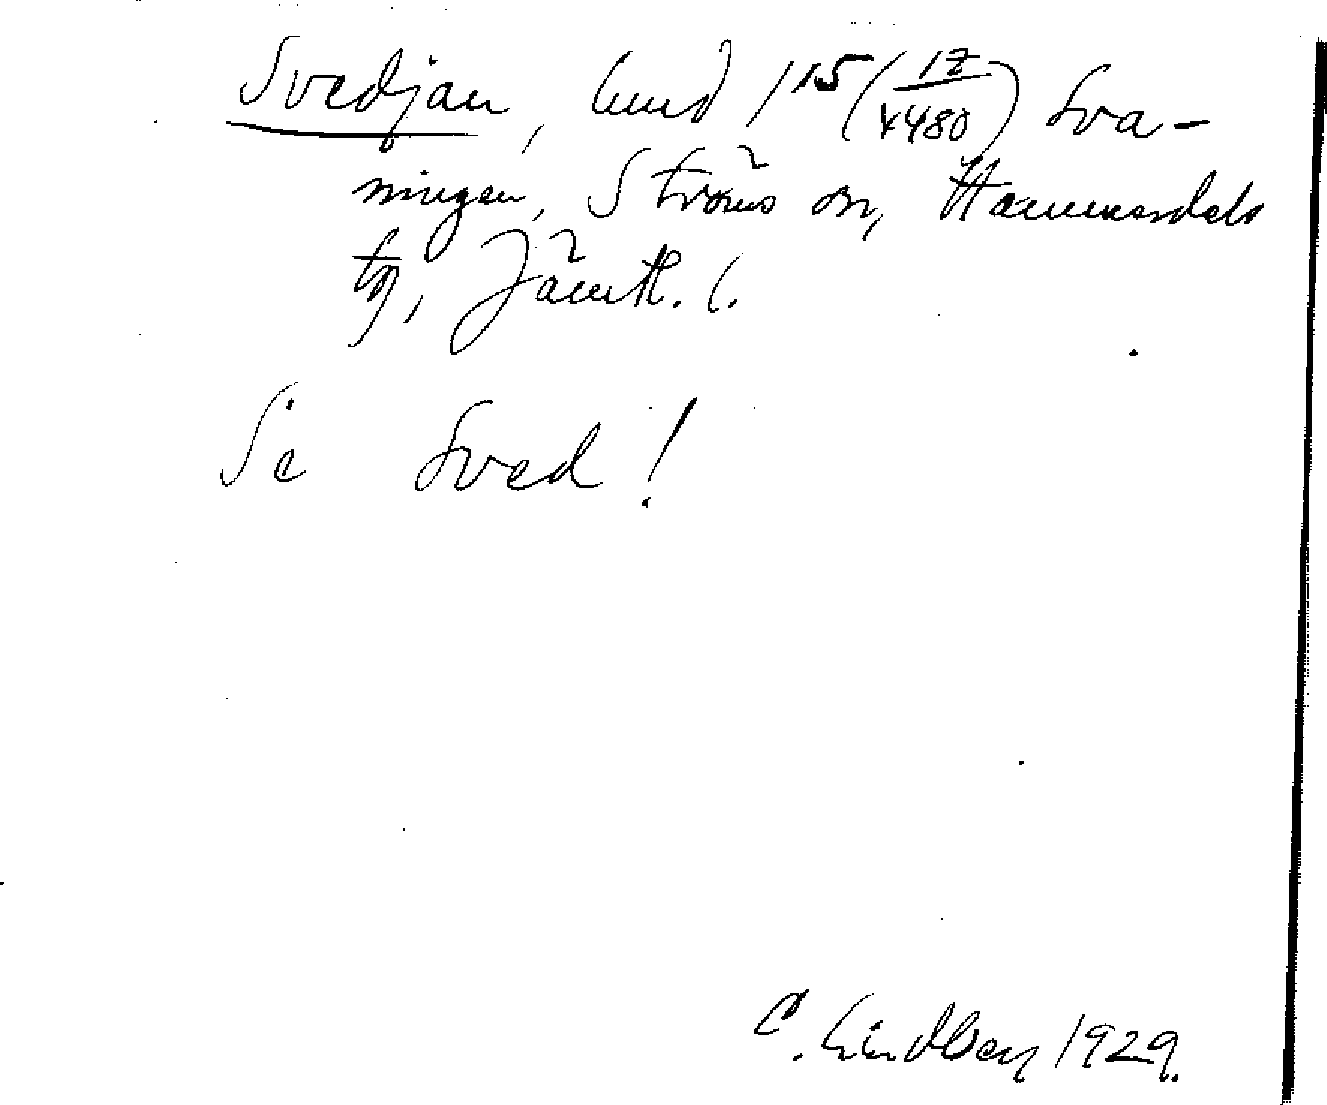 Svedjan, lund 1^15 (17/4480) Sva-
ningen, Ströms sn, Hammerdals
tg, Jämtl. l.
Se Sved!
C. Lindberg 1929.